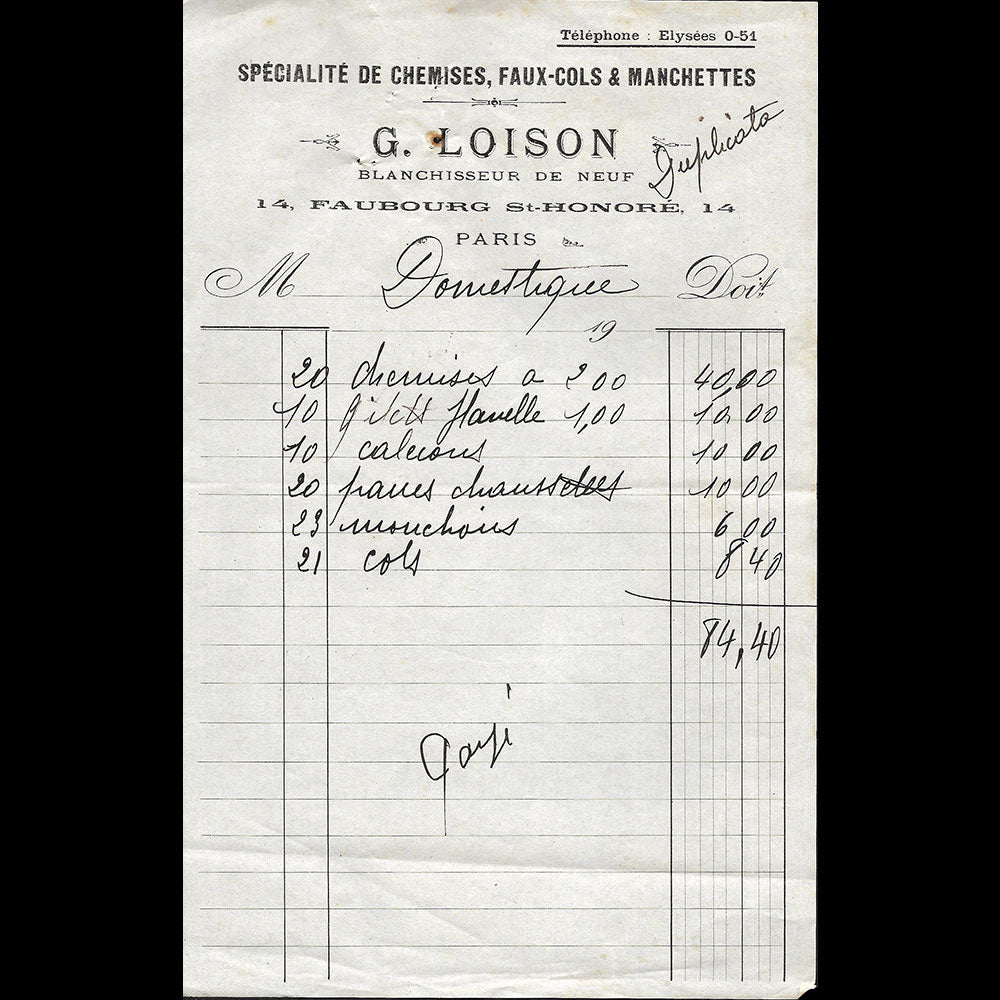 Téléphone : Elysées 0-51
SPÉCIALITÉ DE CHEMISES, FAUX-COLS & MANCHETTES
G. LOISON
Duplicata
BLANCHISSEUR DE NEUF
14, FAUBOURG St-HONORÉ, 14
PARIS
M Domestique Doit
19
20 chemises a 2 00 40,00
10 gilets flanelle 1,00 10,00
10 calecons 10 00
20 paires chaussettes 10 00
23 mouchoirs 6 00
21 cols 8 40
84,40
Payé